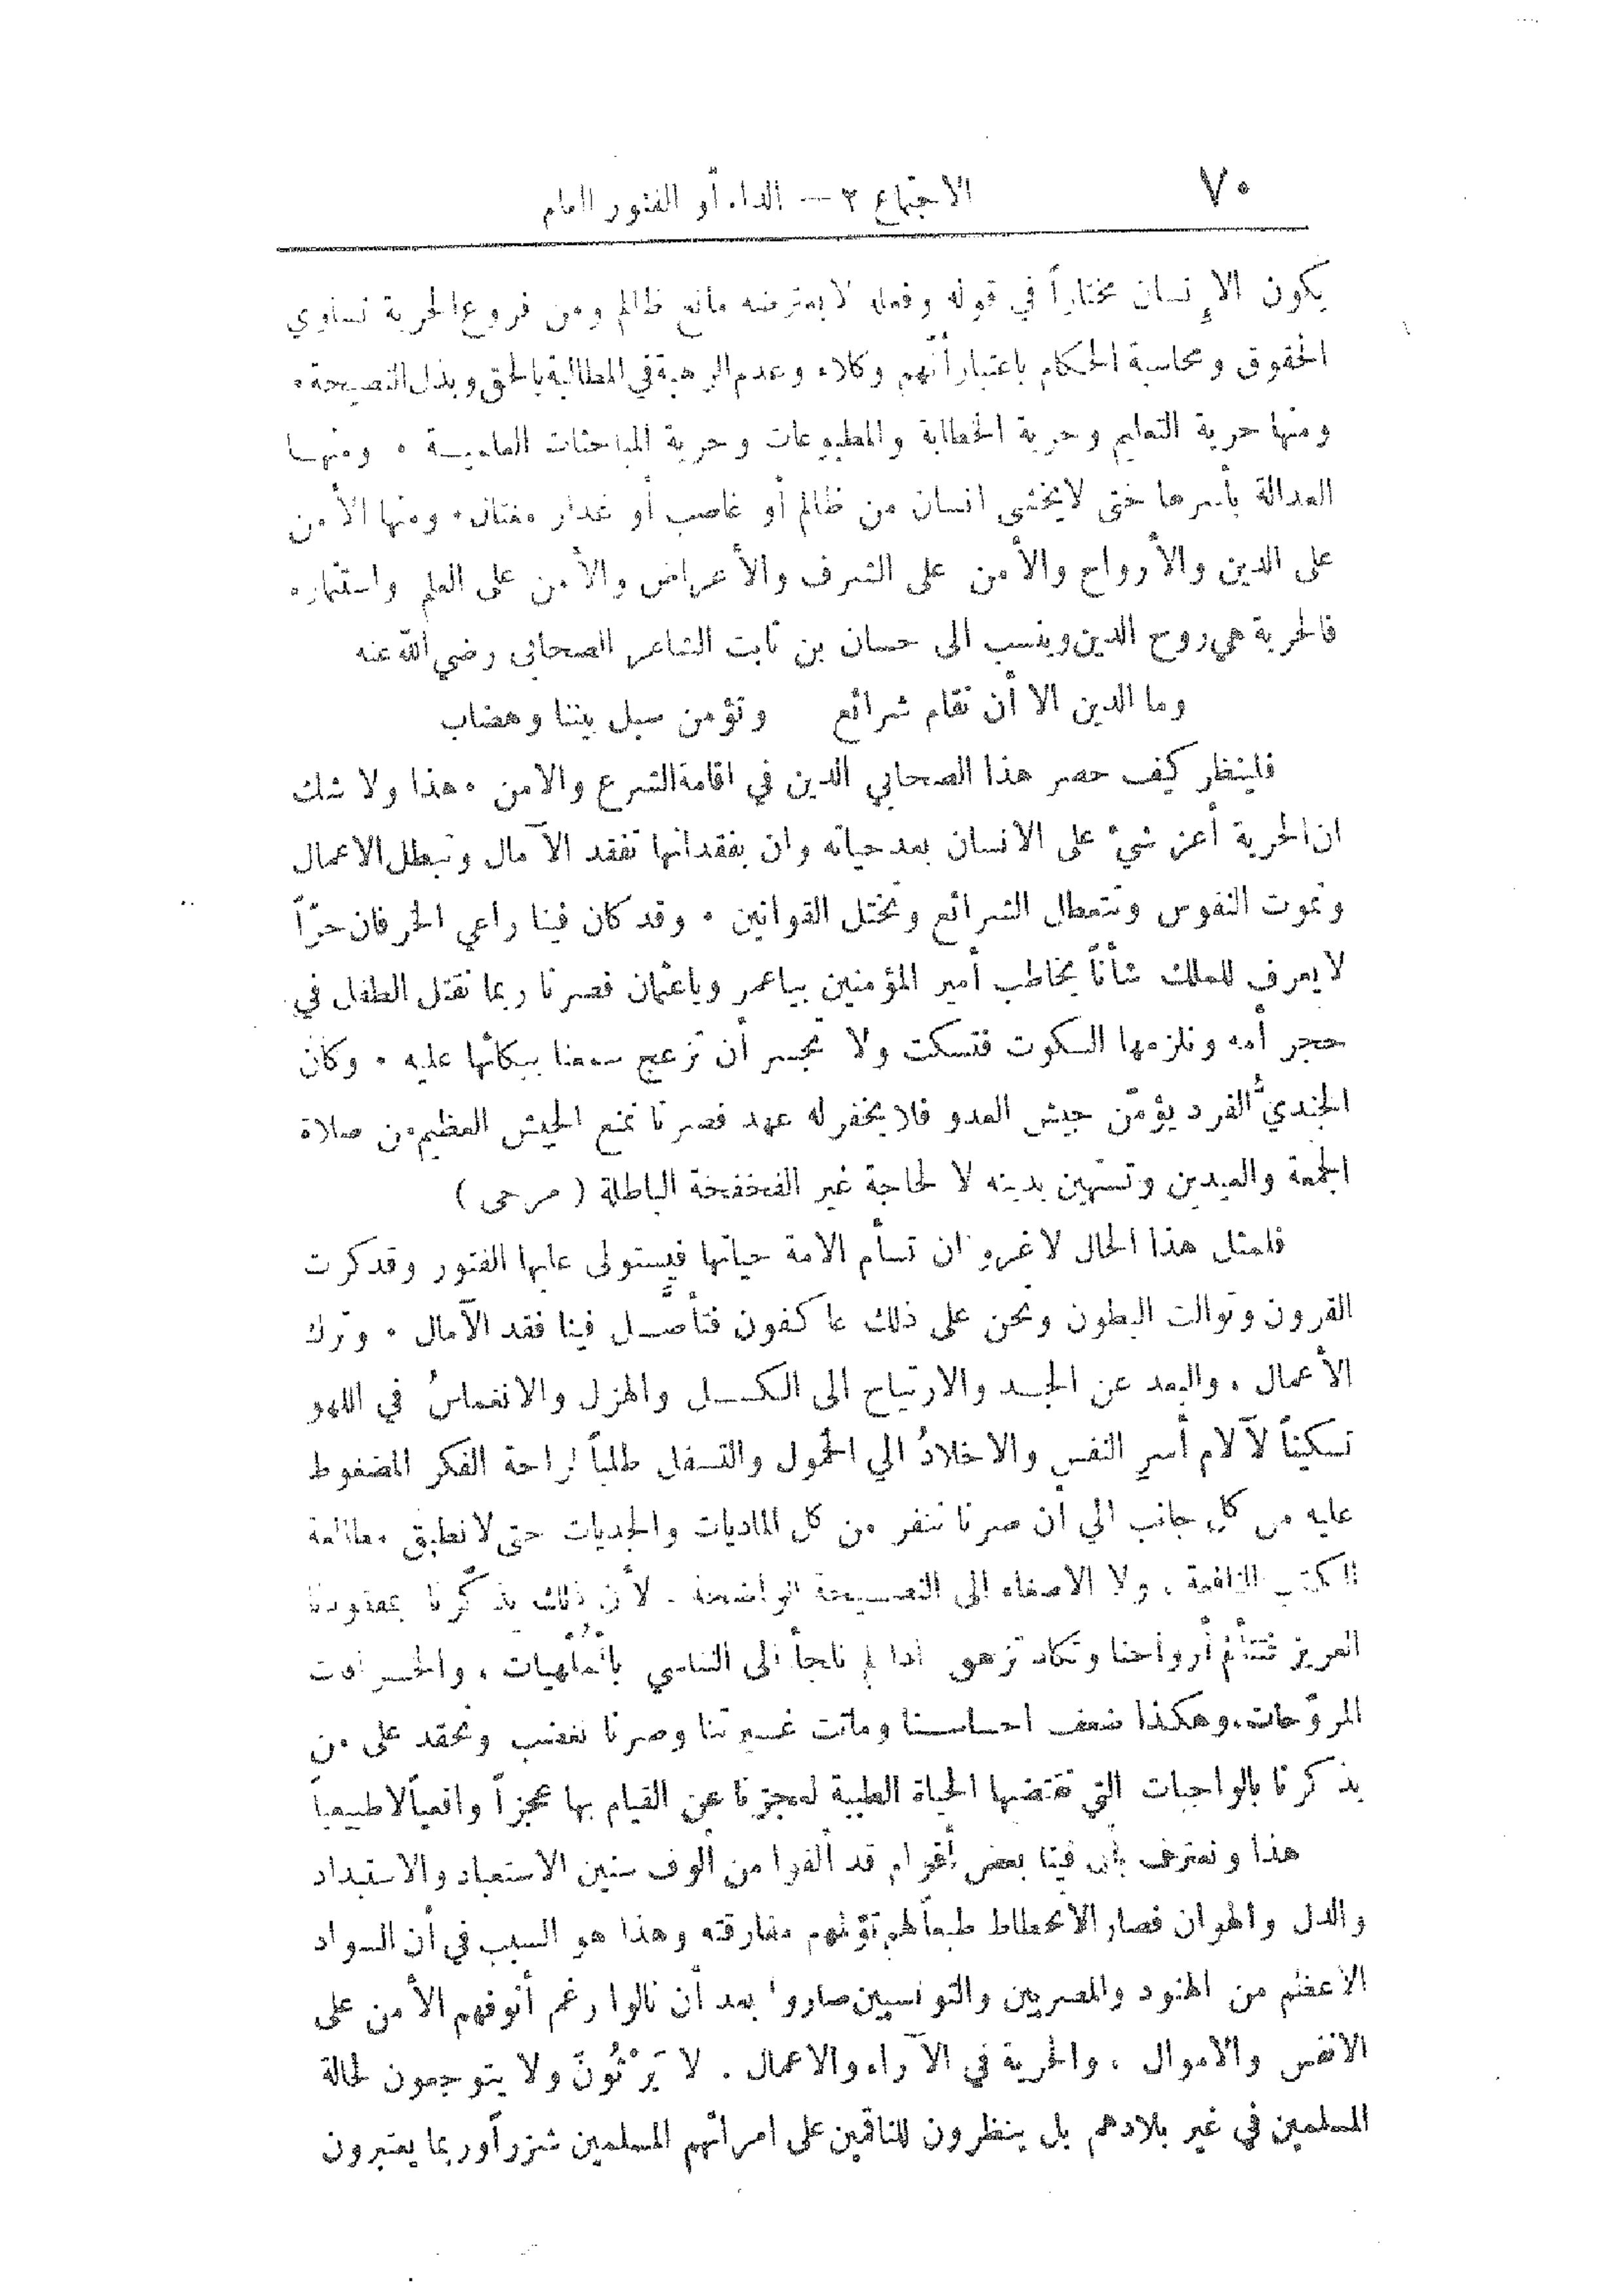 ٧٠
الاجتماع ٢ — الداء أو الفتور العام
يكون الإنسان مختاراً في قوله وفعله لا يعترضه مانع ظالم ومن فروع الحرية تساوي
الحقوق ومحاسبة الحكام باعتبار أنهم وكلاء وعدم الرهبة في المطالبة بالحق وبذل النصيحة.
ومنها حرية التعليم وحرية الخطابة والمطبوعات وحرية المباحثات العلمية . ومنها
العدالة بأسرها حتى لا يخشى انسان من ظالم أو غاصب أو غدار مغتال. ومنها الأمن
على الدين والأرواح والأمن على الشرف والأعراض والأمن على العلم واستثماره
فالحرية هي روح الدين وينسب الى حسان بن ثابت الشاعر الصحابي رضي الله عنه
وما الدين الا أن تقام شرائع وتؤمن سبل بيننا وهضاب
فلينظر كيف حصر هذا الصحابي الدين في اقامة الشرع والامن . هذا ولا شك
ان الحرية أعز شيء على الانسان بعد حياته وان بفقدانها تفقد الآمال وتبطل الاعمال
وتموت النفوس وتتعطل الشرائع وتختل القوانين . وقد كان فينا راعي الخرفان حرّاً
لا يعرف للملك شأناً يخاطب أمير المؤمنين بياعمر وياعثمان فصرنا ربما نقتل الطفل في
حجر أمه ونلزمها السكوت فتسكت ولا تجسر أن تزعج سمعنا ببكائها عليه . وكان
الجنديُّ الفرد يؤمّن جيش العدو فلا يخفر له عهد فصرنا نمنع الجيش العظيم من صلاة
الجمعة والعيدين وتستهين بدينه لا لحاجة غير الفخفخة الباطلة ( مرحى )
فلمثل هذا الحال لا غرو ان تسأم الامة حياتها فيستولى عليها الفتور وقد كرت
القرون وتوالت البطون ونحن على ذلك عاكفون فتأصَّل فينا فقد الآمال . وترك
الأعمال . والبعد عن الجد والارتياح الى الكسل والهزل والانغماسُ في اللهو
تسكيناً لآلام أسرِ النفس والاخلادُ الي الخمول والتسفل طلباً لراحة الفكر المضغوط
عليه من كل جانب الي أن صرنا ننفر من كل الماديات والجديات حتى لا نطيق مطالعة
الكتب النافعة . ولا الاصغاء الى النصيحة الواضحة . لأن ذلك يذكّرنا بمفقودنا
العزيز فتتألم أرواحنا وتكاد تزهق اذا لم نلجأ الى التناسي بالمُلهيات . والخرافات
المروّحات. وهكذا ضعف احساسنا وماتت غيرتنا وصرنا نغضب ونحقد على من
يذكرنا بالواجبات التي تقتضيها الحياة الطيبة لعجزنا عن القيام بها عجزاً واقعياً لا طبيعياً
هذا ونعترف بأن فينا بعض أقوام قد ألفوا من ألوف سنين الاستعباد والاستبداد
والذل والهوان فصار الانحطاط طبعاً لهم تؤلمهم مفارقته وهذا هو السبب في أن السواد
الأعظم من الهنود والمصريين والتونسيين صاروا بعد أن نالوا رغم أنوفهم الأمن على
الانفس والاموال . والحرية في الآراء والاعمال . لا يَرْثُونَ ولا يتوجعون لحالة
المسلمين في غير بلادهم بل ينظرون للناقمين على امرائهم المسلمين شزراً وربما يعتبرون